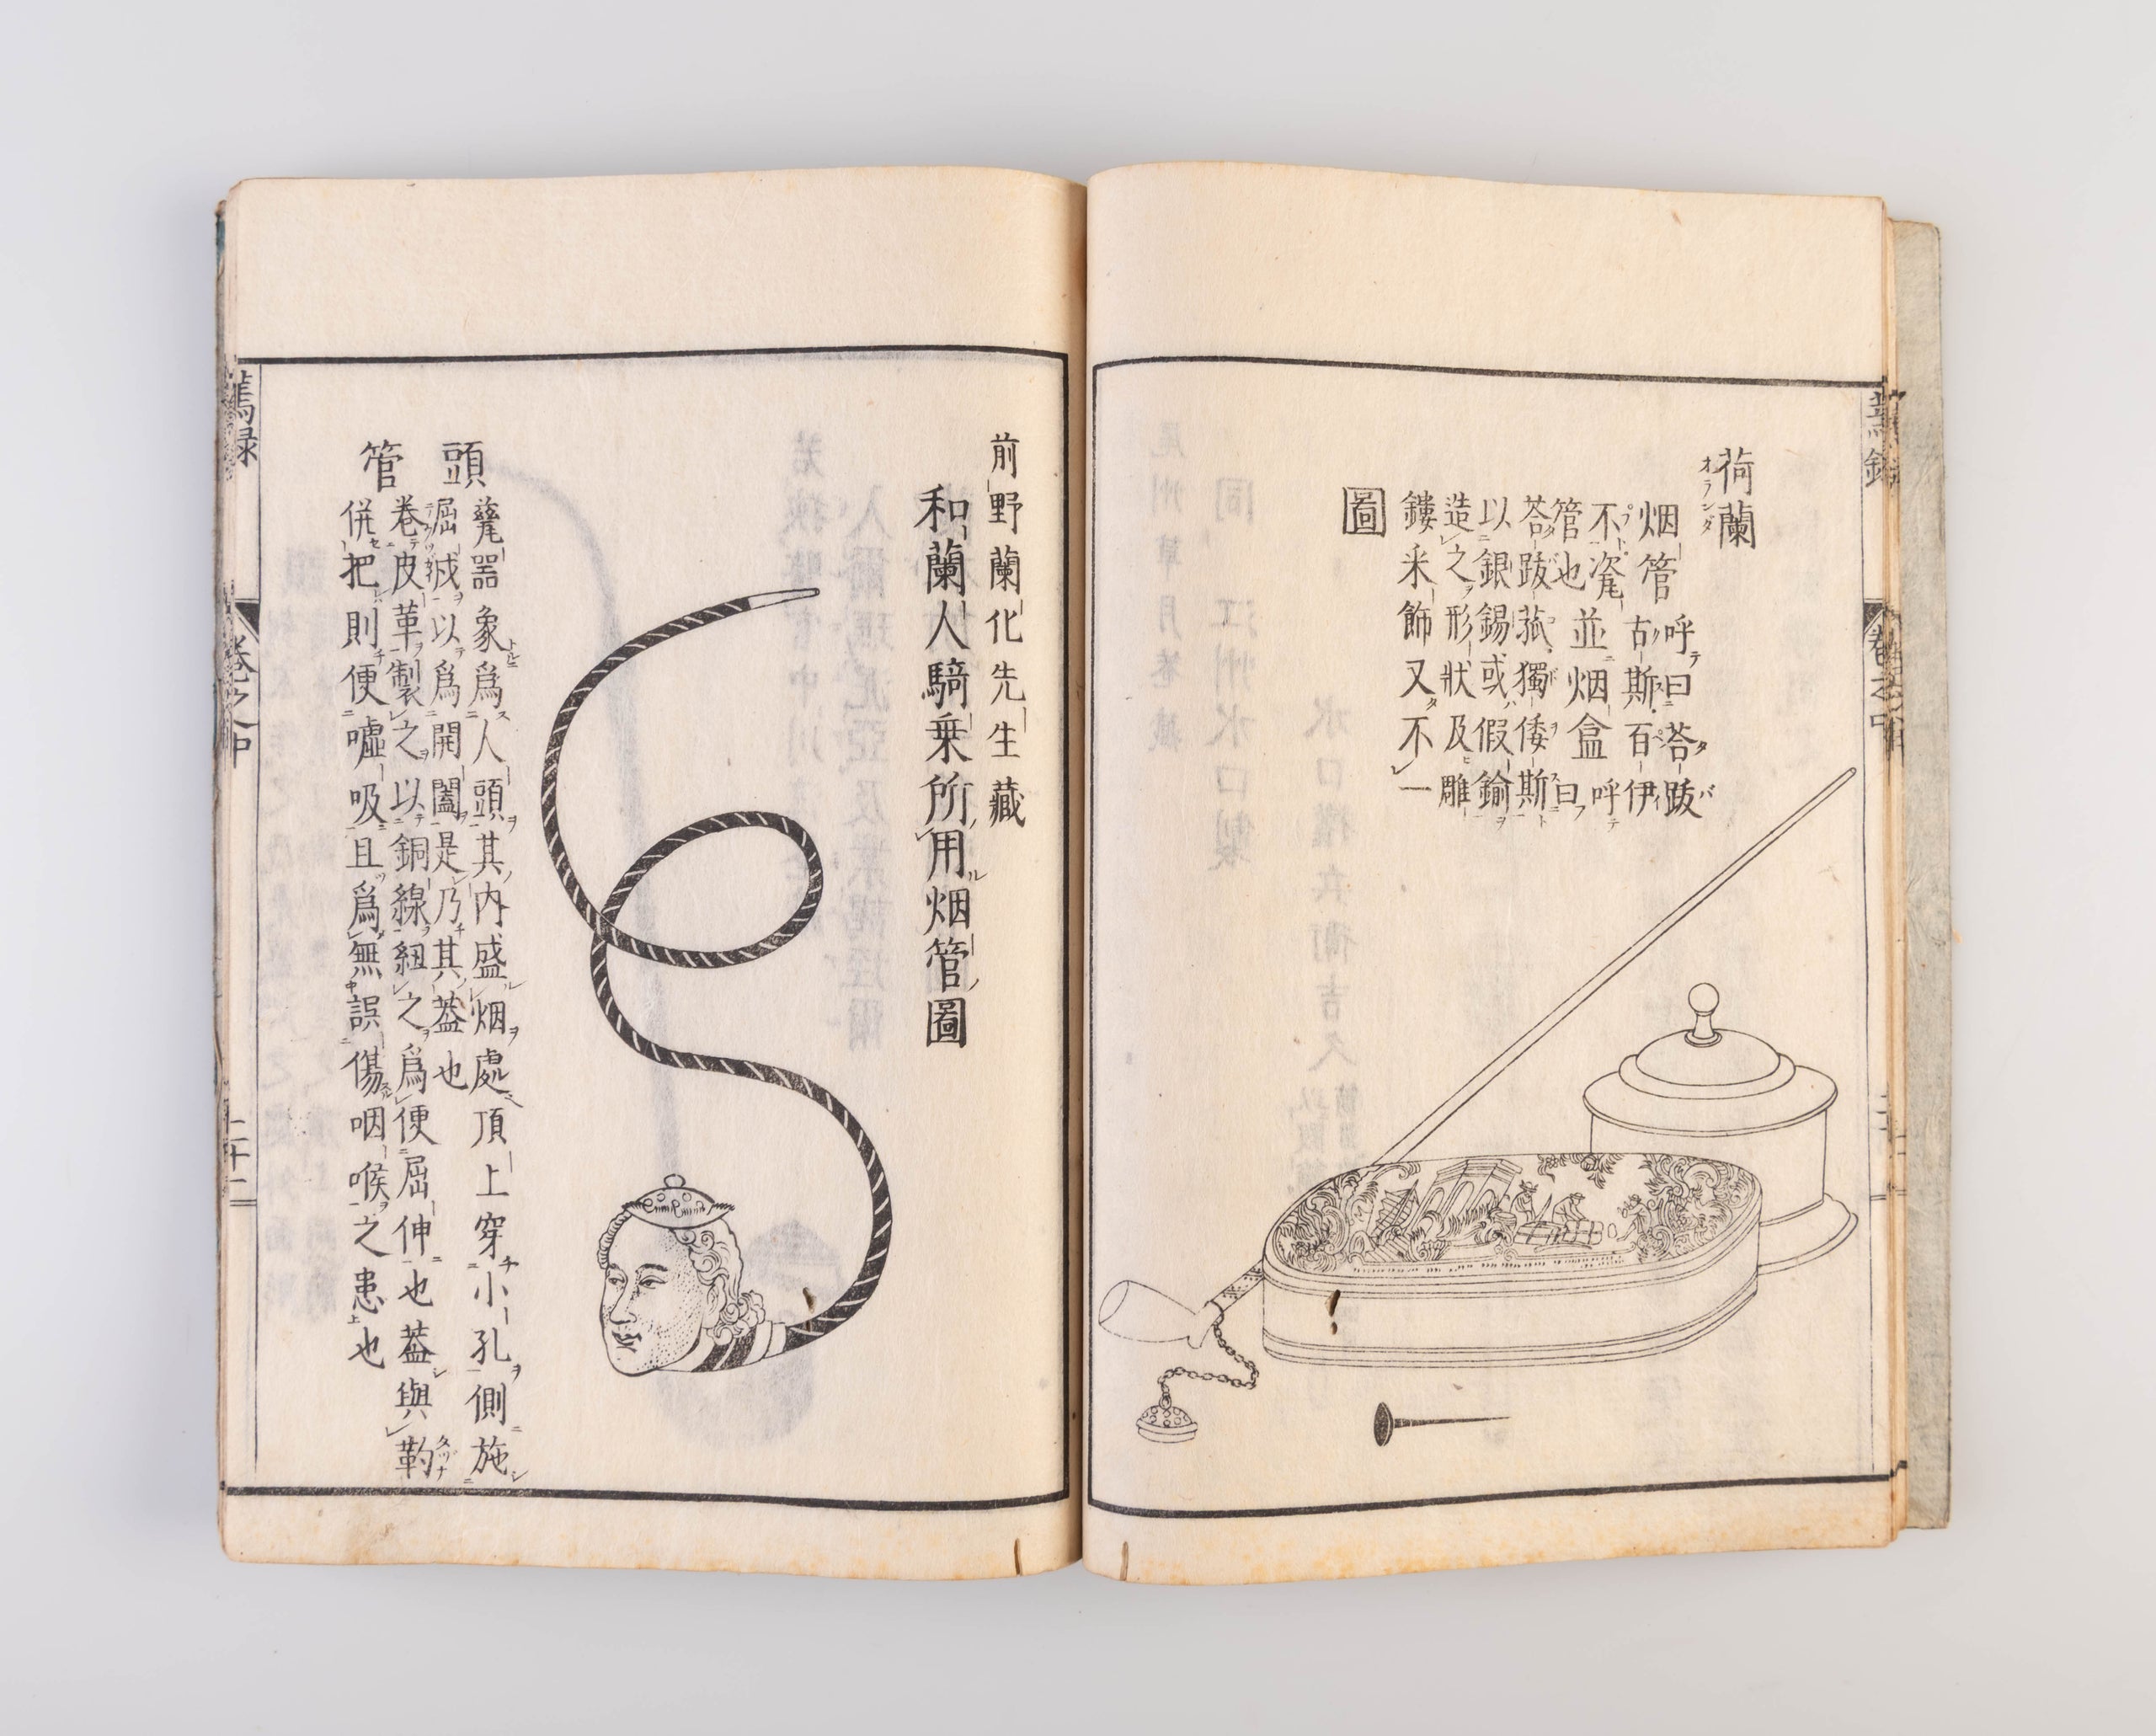 荷蘭
オランダ
烟管
呼曰荅跋
古斯百伊
不瓷
管也
並烟盒
呼
曰
荅跋菰獨倭斯
以銀錫或假鍮
造之形狀及雕
鏤采飾又不一
圖
前野蘭化先生藏
和蘭人騎乗所用烟管圖
頭
甆器象爲人頭其内盛烟處頂上穿小孔側施
屈戌以爲開闔是乃其葢也
管
卷皮革製之以銅線紐之爲便屈伸也葢與靮
併把則便嘘吸且爲無誤傷咽喉之患也
蔫録
卷之中
二十二